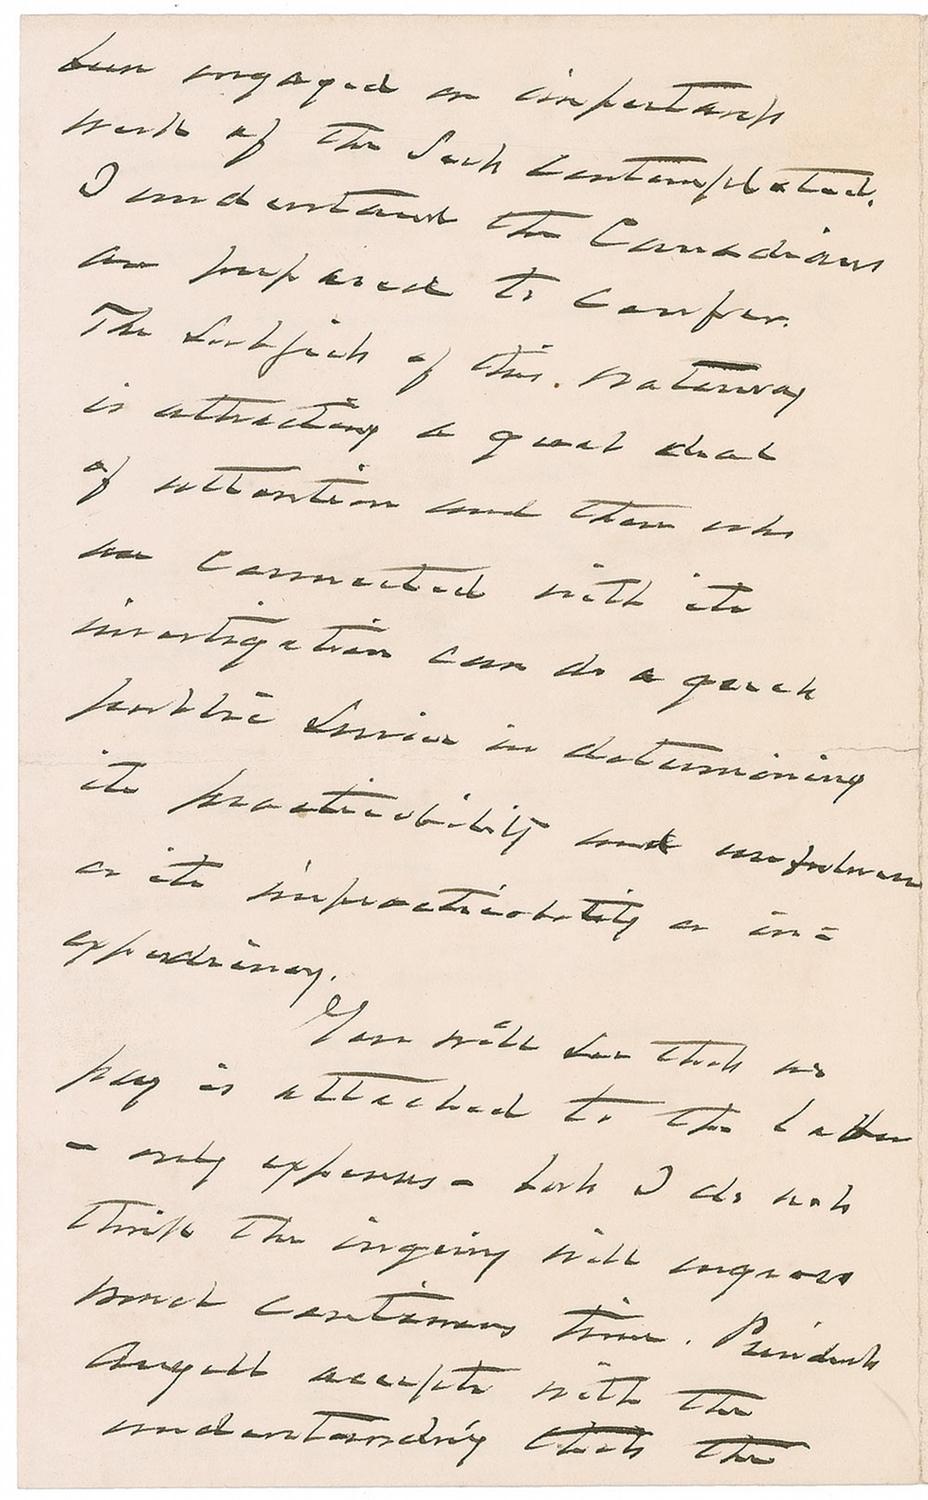 been engaged on important
work of the sort contemplated.
I understand the Canadians
are prepared to confer.
The subject of this waterway
is attracting a great deal
of attention and those who
are connected with its
investigation can do a great
public service in determining
its practicability and
or its impracticability or in=
expediency.
You will see that no
pay is attached to the latter
- only expenses - but I do not
think the inquiry will engross
much continuous time. President
Angell accepts with the
understanding that the